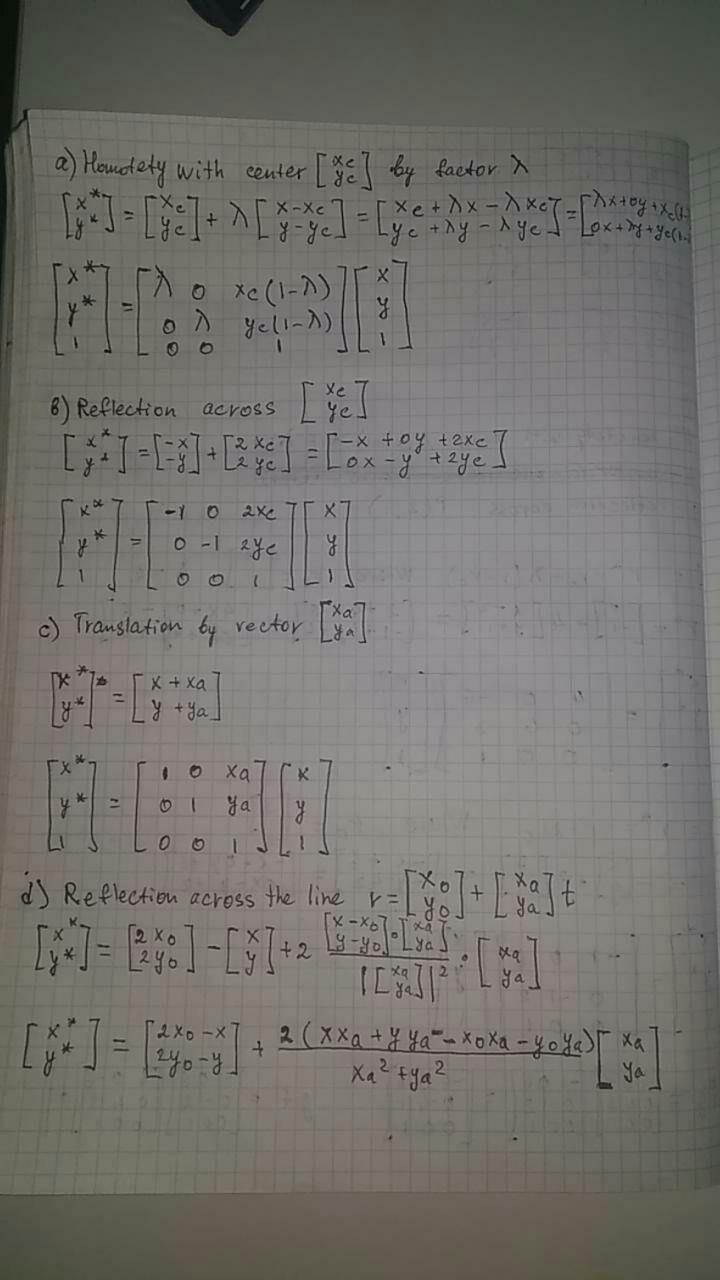 a) Homotety with center [xc yc] by factor λ
[x* y*] = [xc yc] + λ [x-xc y-yc] = [xc + λx - λxc yc + λy - λyc] = [λx+0y+xc(1- 0x+λy+yc(1-
[x* y* 1] = [λ 0 xc(1-λ) 0 λ yc(1-λ) 0 0 1] [x y 1]
b) Reflection across [xc yc]
[x* y*] = [-x -y] + [2xc 2yc] = [-x +0y +2xc 0x -y +2yc]
[x* y* 1] = [-1 0 2xc 0 -1 2yc 0 0 1] [x y 1]
c) Translation by vector [xa ya]
[x* y*] = [x + xa y + ya]
[x* y* 1] = [1 0 xa 0 1 ya 0 0 1] [x y 1]
d) Reflection across the line r = [x0 y0] + [xa ya] t
[x* y*] = [2x0 2y0] - [x y] + 2 [x-x0 y-y0]•[xa ya] / |[xa ya]|² • [xa ya]
[x* y*] = [2x0 - x 2y0 - y] + 2(xxa + yya - x0xa - y0ya) / xa² + ya² [xa ya]